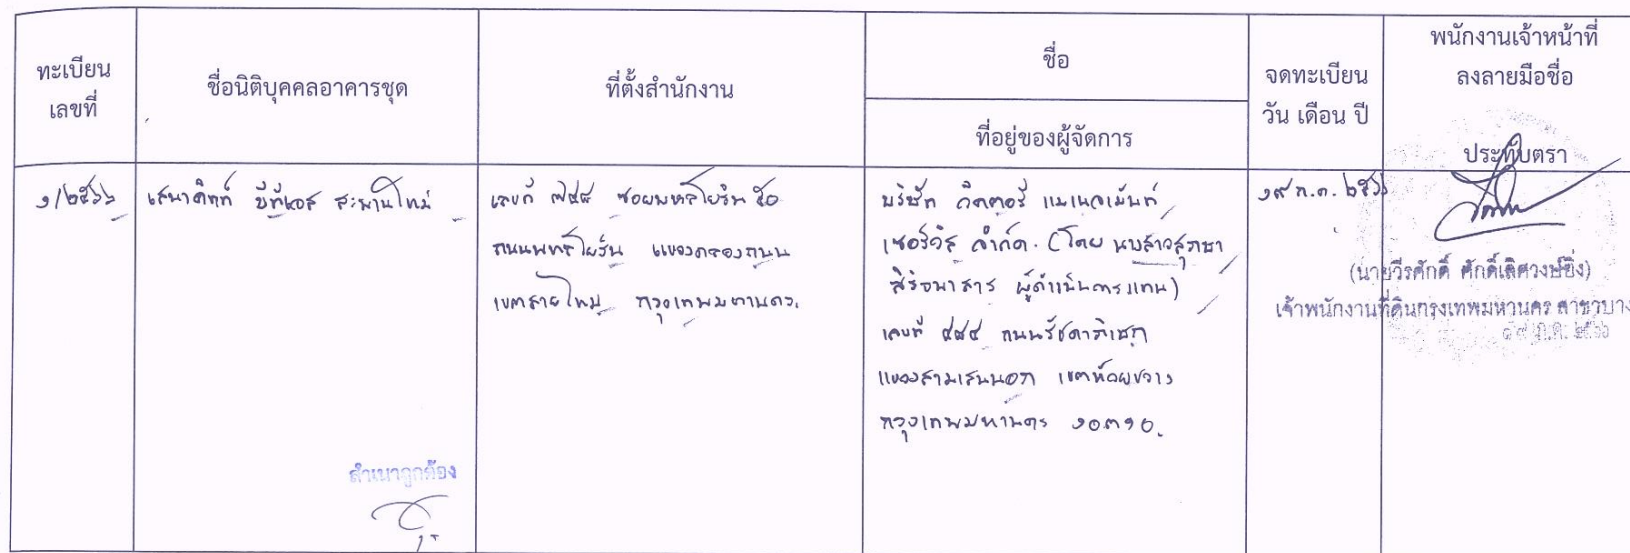 ทะเบียน
เลขที่
ชื่อนิติบุคคลอาคารชุด
ที่ตั้งสำนักงาน
ชื่อ
ที่อยู่ของผู้จัดการ
จดทะเบียน
วัน เดือน ปี
พนักงานเจ้าหน้าที่
ลงลายมือชื่อ
ประทับตรา
๑/๒๕๖๖
เสนาคิทท์ บีทีเอส สะพานใหม่
เลขที่ ซอยพหลโยธิน ๕๐
ถนนพหลโยธิน แขวงคลองถนน
เขตสายไหม กรุงเทพมหานคร.
บริษัท วิคตอรี่ แมเนจเม้นท์
เซอร์วิส จำกัด. (โดย นางสาวสุภษา
ผู้ดำเนินการแทน)
เลขที่ ๔๘๔ ถนนรัชดาภิเษก
แขวงสามเสนนอก เขตห้วยขวาง
กรุงเทพมหานคร ๑๐๓๑๐.
๑๙ ก.ค. ๒๕๖๖
(นายวีรศักดิ์ ศักดิ์เลิศวงษ์ยิ่ง)
เจ้าพนักงานที่ดินกรุงเทพมหานคร สาขาบาง
๑๙ ก.ค. ๒๕๖๖
สำเนาถูกต้อง